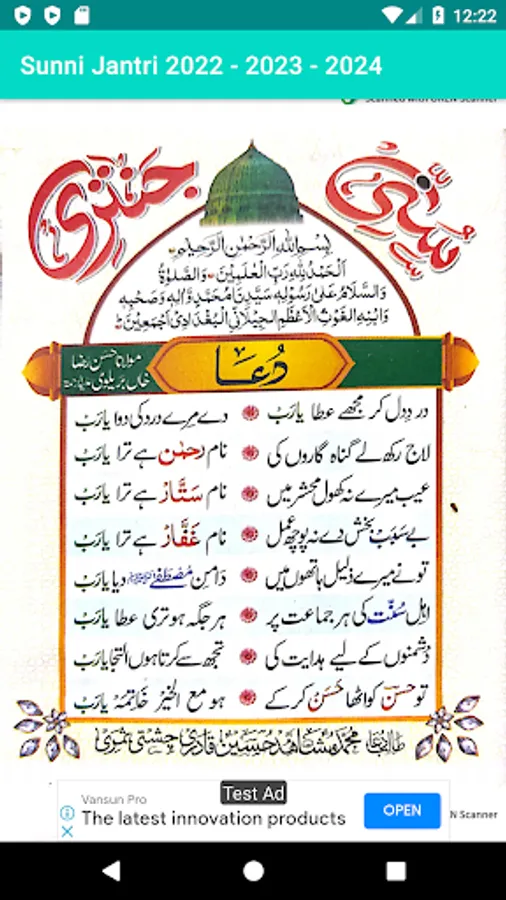 12:22
Sunni Jantri 2022 - 2023 - 2024
سُنّی جنتری
بِسْمِ اللهِ الرَّحْمٰنِ الرَّحِیْمِ
اَلْحَمْدُ لِلّٰهِ رَبِّ الْعٰلَمِیْنَ وَالصَّلٰوةُ
وَالسَّلَامُ عَلٰی رَسُوْلِهٖ سَیِّدِنَا مُحَمَّدٍ وَّاٰلِهٖ وَصَحْبِهٖ
وَابْنِهِ الْغَوْثِ الْاَعْظَمِ الْجِیْلَانِیِّ الْبَغْدَادِیِّ اَجْمَعِیْنَ
دُعَا
مولانا حسن رضا
خاں بریلوی
درد دل کر مجھے عطا یارَبْ دے میرے درد کی دوا یارَبْ
لاج رکھ لے گناہ گاروں کی نام رحمٰن ہے ترا یارَبْ
عیب میرے نہ کھول محشر میں نام سَتَّارْ ہے ترا یارَبْ
بے سَبَبْ بخش دے نہ پوچھ عمل نام غَفَّارْ ہے ترا یارَبْ
تو نے میرے ذلیل ہاتھوں میں دَامنِ مُصْطَفٰے ﷺ دیا یارَبْ
اہلِ سُنّت کی ہر جماعت پر ہر جگہ ہو تری عطا یارَبْ
دُشمنوں کے لیے ہدایت کی تجھ سے کرتا ہوں التجا یارَبْ
تو حَسنْ کو اٹھا حَسَنْ کر کے ہو مع الخَیْرْ خَاتِمَہْ یارَبْ
محمد مشاہد حسین قادری چشتی
Test Ad
Vansun Pro
The latest innovation products
OPEN
N Scanner